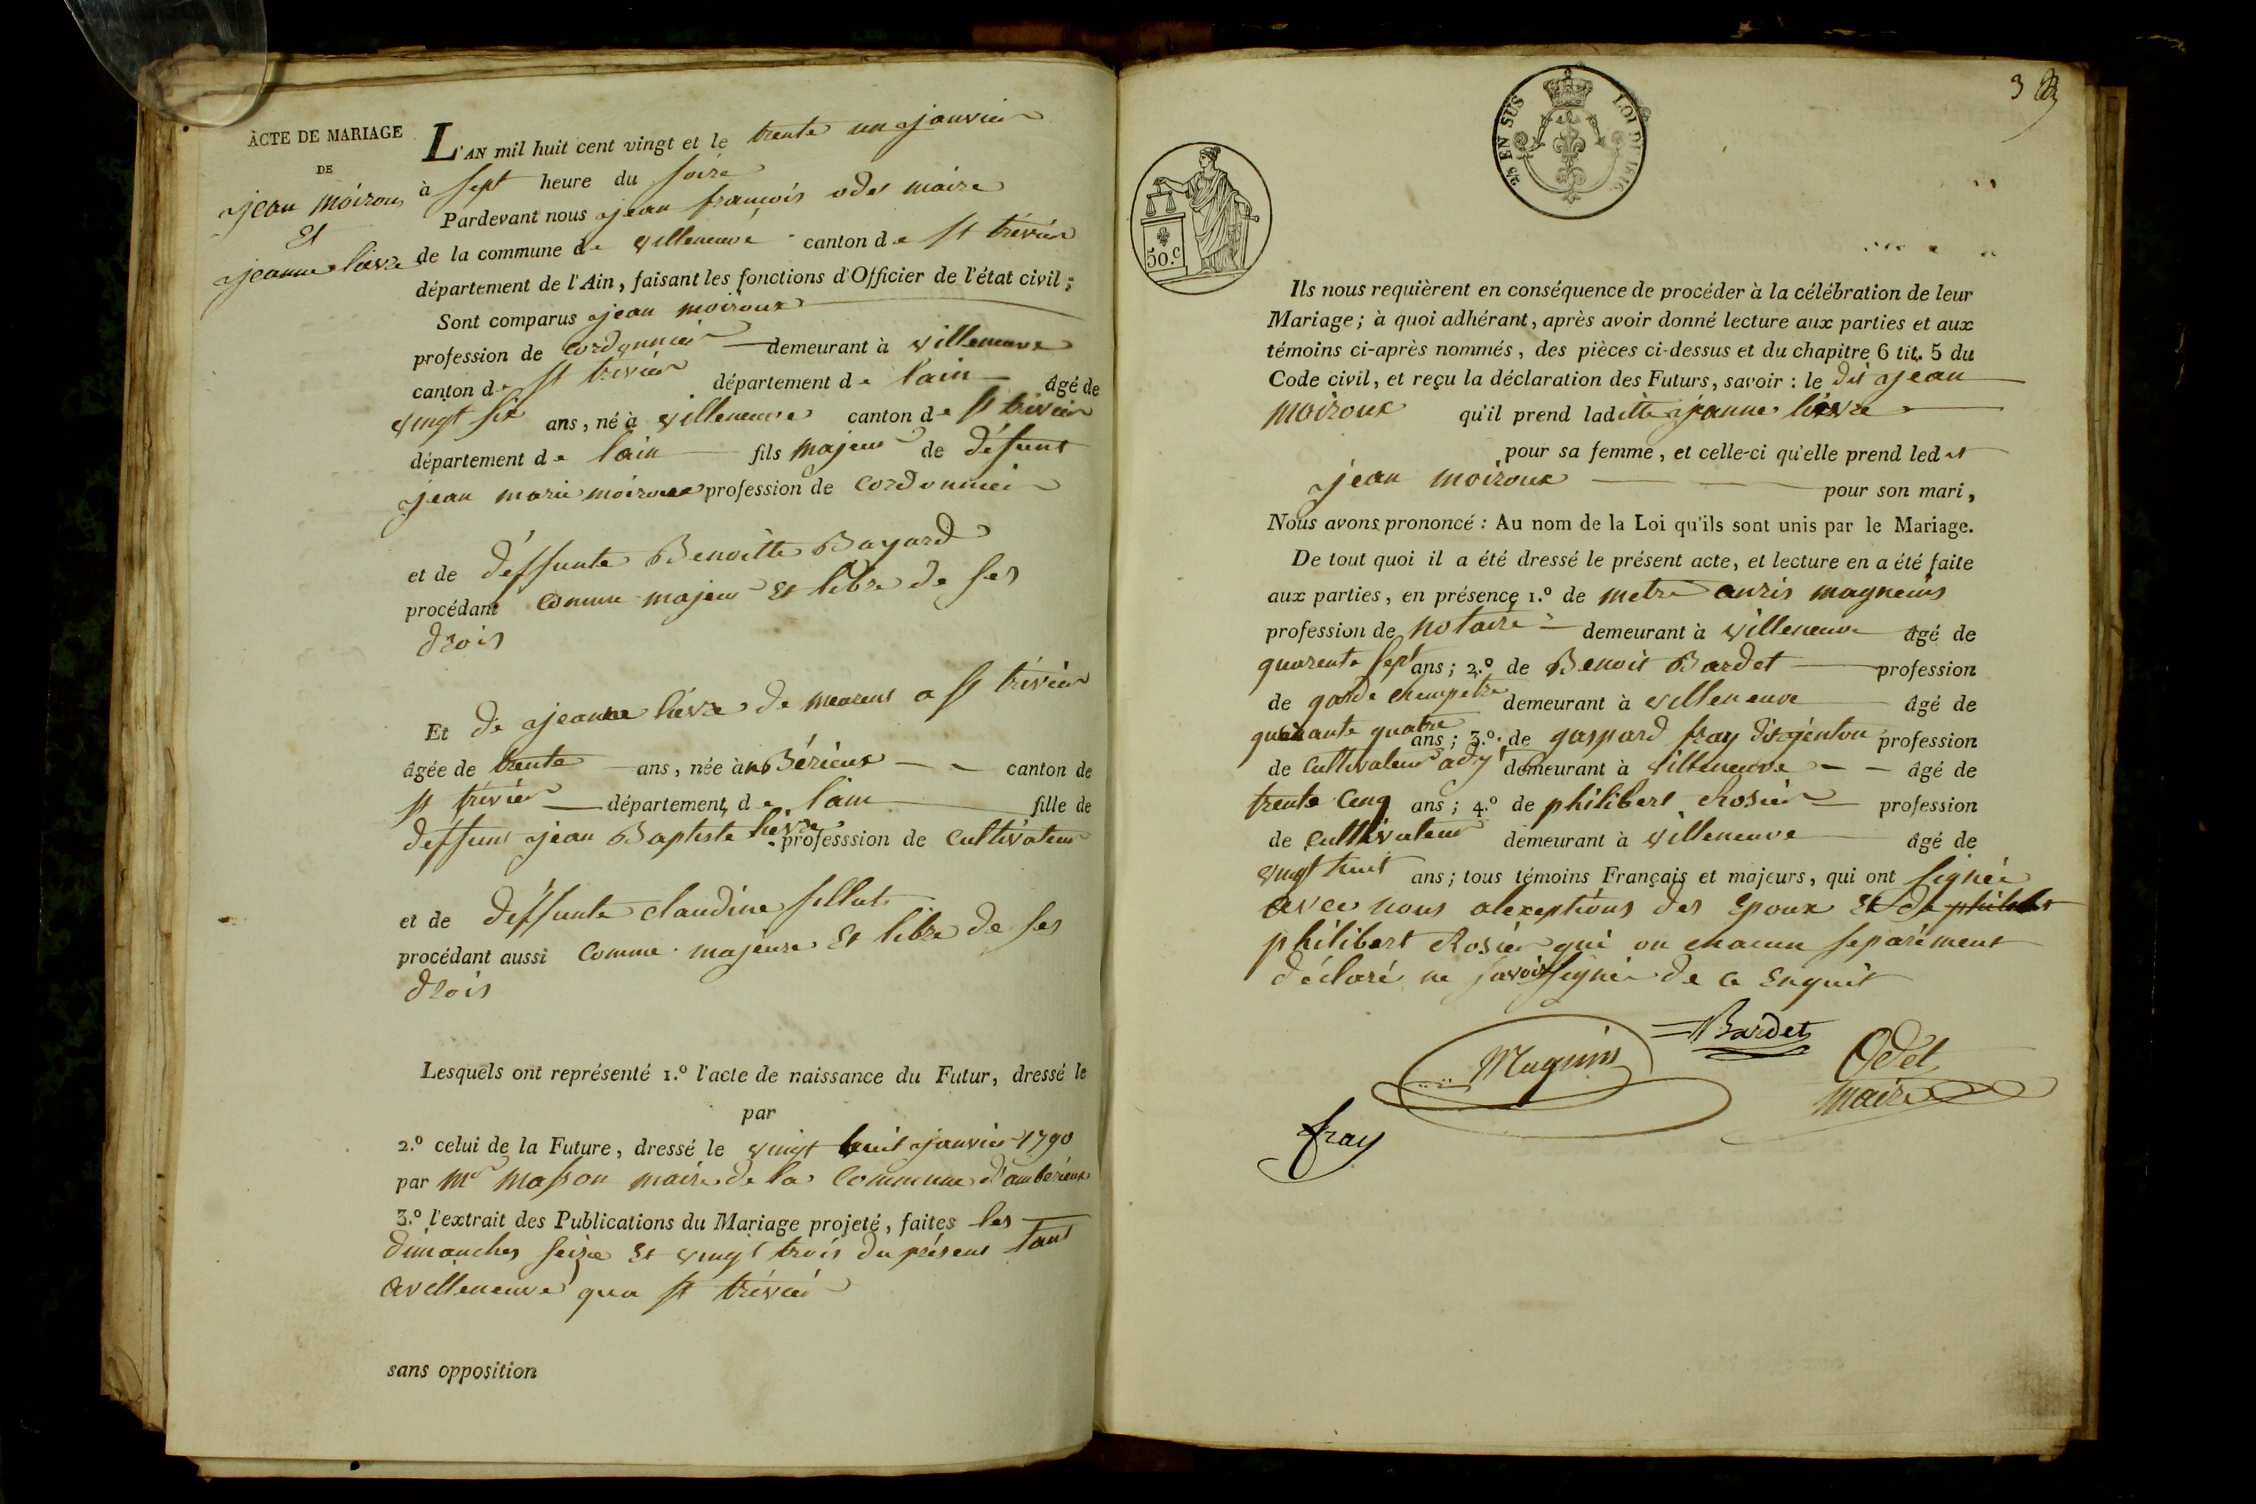 ACTE DE MARIAGE
DE
jean moiroux
Et
jeanne lievre
L'AN mil huit cent vingt et le trente un janvier
à sept heure du soire
Pardevant nous jean francois odet maire
de la commune de villeneuve canton de st trévier
département de l'Ain, faisant les fonctions d'Officier de l'état civil;
Sont comparus jean moiroux
profession de cordonnier demeurant à villeneuve
canton de st trévier département de lain âgé de
vingt six ans, né à villeneuve canton de st trévier
département de lain fils majeur de défunt
jean marie moiroux profession de cordonnier
et de deffunte Benoitte Bayard
procédant comme majeur et libre de ses
drois
Et de jeanne lièvre de meurent a st trévier
âgée de trente ans, née à Bérieux canton de
st trévier département de lain fille de
deffunt jean Baptiste lievre professsion de cultivateur
et de deffunte claudine sillut
procédant aussi comme majeure et libre de ses
drois
Lesquels ont représenté 1.º l'acte de naissance du Futur, dressé le
par
2.º celui de la Future, dressé le vingt huit janvier 1790
par mr masson maire de la commune d'ambérieux
3.º l'extrait des Publications du Mariage projeté, faites les
dimanches seize et vingt trois du présent tant
avilleneuve qua st trévier
sans opposition
3
25 EN SUS LOI DE 1816
50.c
Ils nous requièrent en conséquence de procéder à la célébration de leur
Mariage; à quoi adhérant, après avoir donné lecture aux parties et aux
témoins ci-après nommés, des pièces ci-dessus et du chapitre 6 tit. 5 du
Code civil, et reçu la déclaration des Futurs, savoir: le dit jean
moiroux qu'il prend laditte jeanne lievre
pour sa femme, et celle-ci qu'elle prend ledit
jean moiroux pour son mari,
Nous avons prononcé: Au nom de la Loi qu'ils sont unis par le Mariage.
De tout quoi il a été dressé le présent acte, et lecture en a été faite
aux parties, en présence 1.º de metre anris magneins
profession de notaire demeurant à villeneuve âgé de
quarente sept ans; 2.º de Benoit Bardet profession
de garde champetre demeurant à villeneuve âgé de
quarante quatre ans; 3.º de gaspard fray dit genton profession
de cultivateur adjt demeurant à villeneuve âgé de
trente cinq ans; 4.º de philibert Rosier profession
de cultivateur demeurant à villeneuve âgé de
vingt huit ans; tous témoins Français et majeurs, qui ont signée
avec nous alexeptions des Epoux Et de philibert
philibert Rosier qui on chacun separément
déclaré ne savoir signer de ce Enquit
Bardet
Magnins
Odet
maire
fray